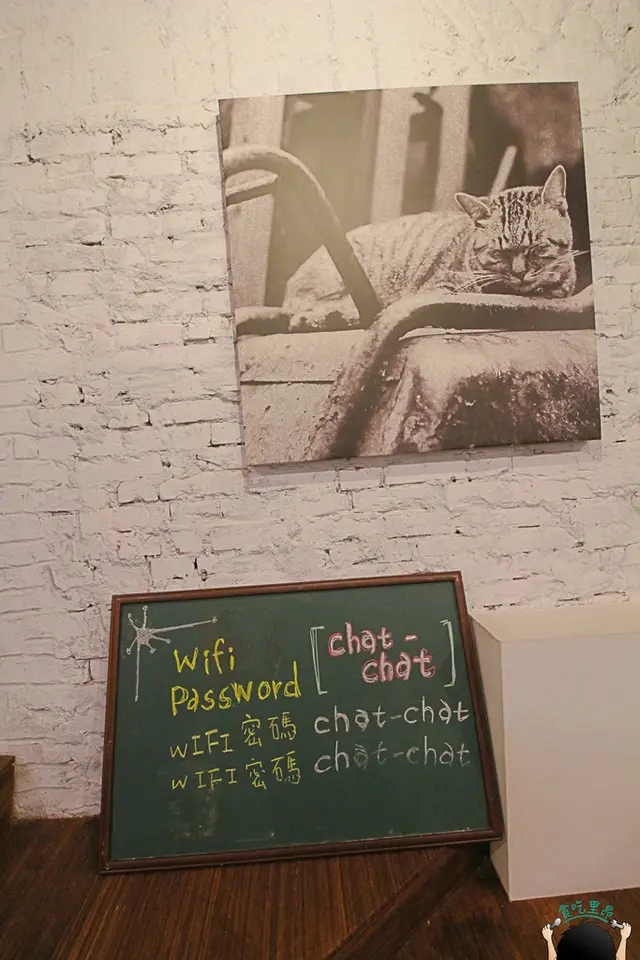 Wifi
Password
[chat-
chat]
WIFI 密碼 chat-chat
WIFI 密碼 chat-chat
貪吃里吊